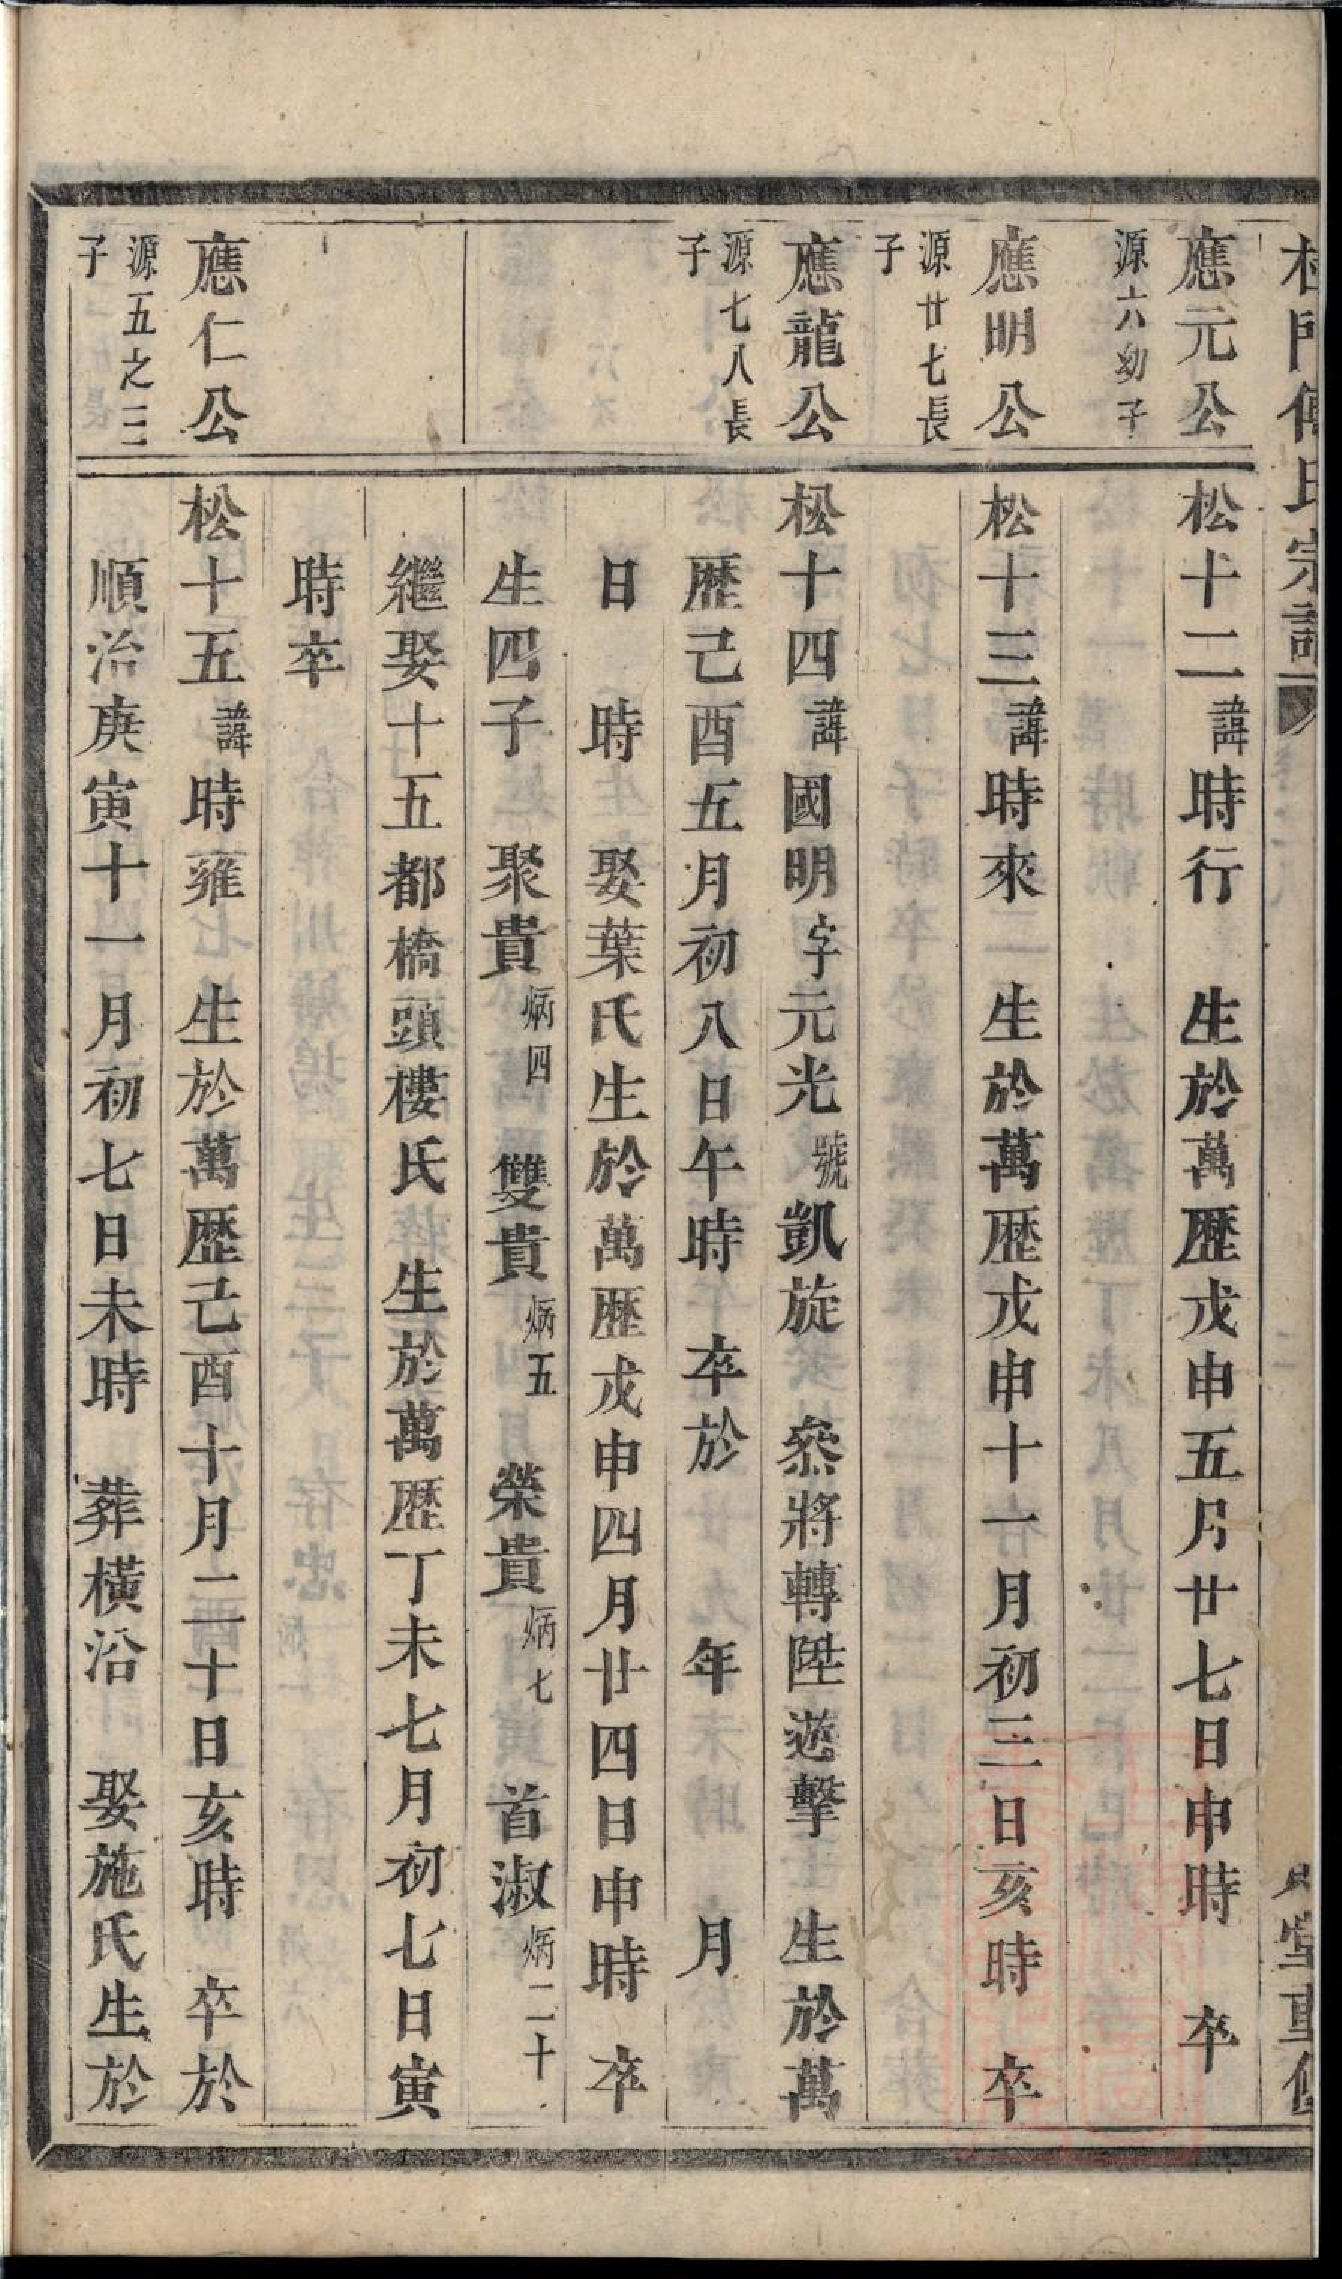 杜門傅氏宗譜
堂重修
應元公
源六幼子
松十二諱時行 生於萬歴戊申五月廿七日申時 卒
應明公
源廿七長
子
松十三諱時來 生於萬歴戊申十一月初三日亥時 卒
應龍公
源七八長
子
松十四諱國明字元光號凱旋 叅將轉陞遊擊 生於萬
歴己酉五月初八日午時 卒於 年 月
日 時 娶葉氏生於萬歴戊申四月廿四日申時 卒
生四子 聚貴炳四 雙貴炳五 榮貴炳七 首淑炳二十
繼娶十五都橋頭樓氏 生於萬歴丁未七月初七日寅
時卒
應仁公
源五之三
子
松十五諱時雍 生於萬歴己酉十月二十日亥時 卒於
順治庚寅十一月初七日未時 葬橫沿 娶施氏生於